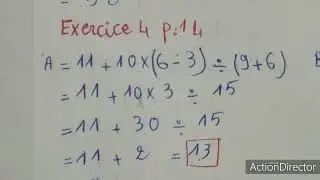 Exercice 4 p:14
A = 11 + 10 × (6 - 3) ÷ (9 + 6)
= 11 + 10 × 3 ÷ 15
= 11 + 30 ÷ 15
= 11 + 2 = 13
ActionDirector